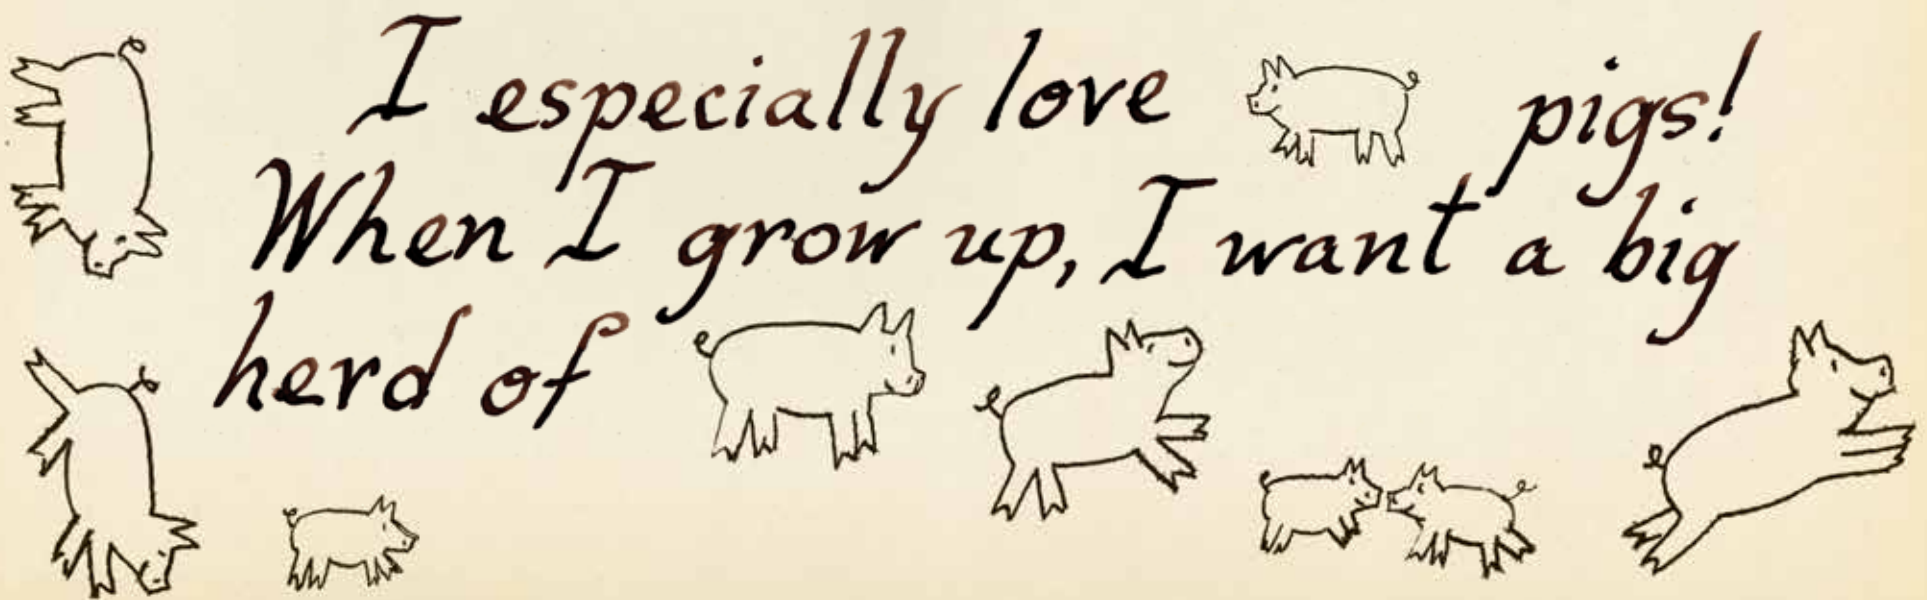 I especially love pigs!
When I grow up, I want a big
herd of